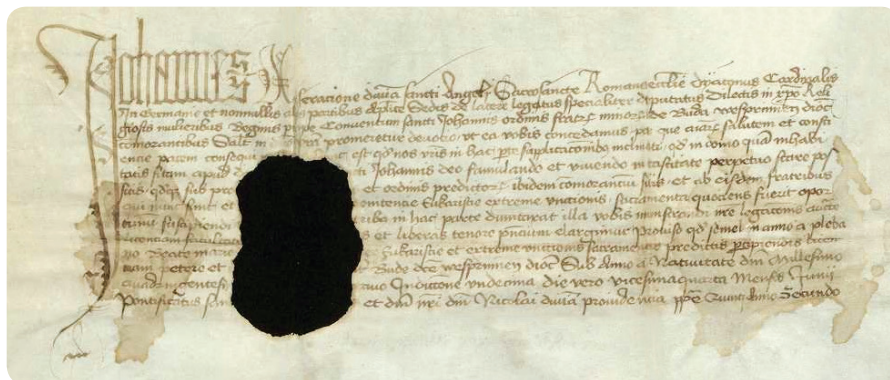 Johannes
seracione divina sancti Angeli Sacrosancte Romane ecclie dyaconus Cardinalis
In Germanie et nonnullis aliis partibus Aplice Sedis de latere legatus specialiter deputatus Dilectis in xpo Reli
giosis mulieribus Beginis prope Conventum sancti Johannis ordinis fratrum minorum de Buda wesprimien dioc
comorantibus Salt in devotio ut ea vobis concedamus per que aiarum salutem et consci
encie pacem consequi est qd nos vris in hac pte supplicationibus inclinati ed in domo quam inhabi
tatis sitam apud ti Johannis deo famulando et vivendo in castitate perpetuo stare pos
sitis qdque sub pre et ordinis predictorum ibidem comorantium sitis et ab eisdem fratribus
qui nunc sunt et nitencie Eukaristie extreme unctionis sacramenta quociens fuerit opor
tunum suscipiendi in hac parte duxerint illa vobis ministrandi
licentiam et liberas tenore pncium elargimur Proviso qd semel in anno a pleba
no Beate Marie Eukaristie et extreme unctionis sacramenta predictis
petere et Bude dce wesprimien dioc Sub Anno a Nativitate dni Millesimo
quadringentesi Indictione undecima die vero vicesimaquarta Mensis Junii
Pontificatus san et dni nri dni Nicolai divina providencia ppe Quinti Anno Secundo